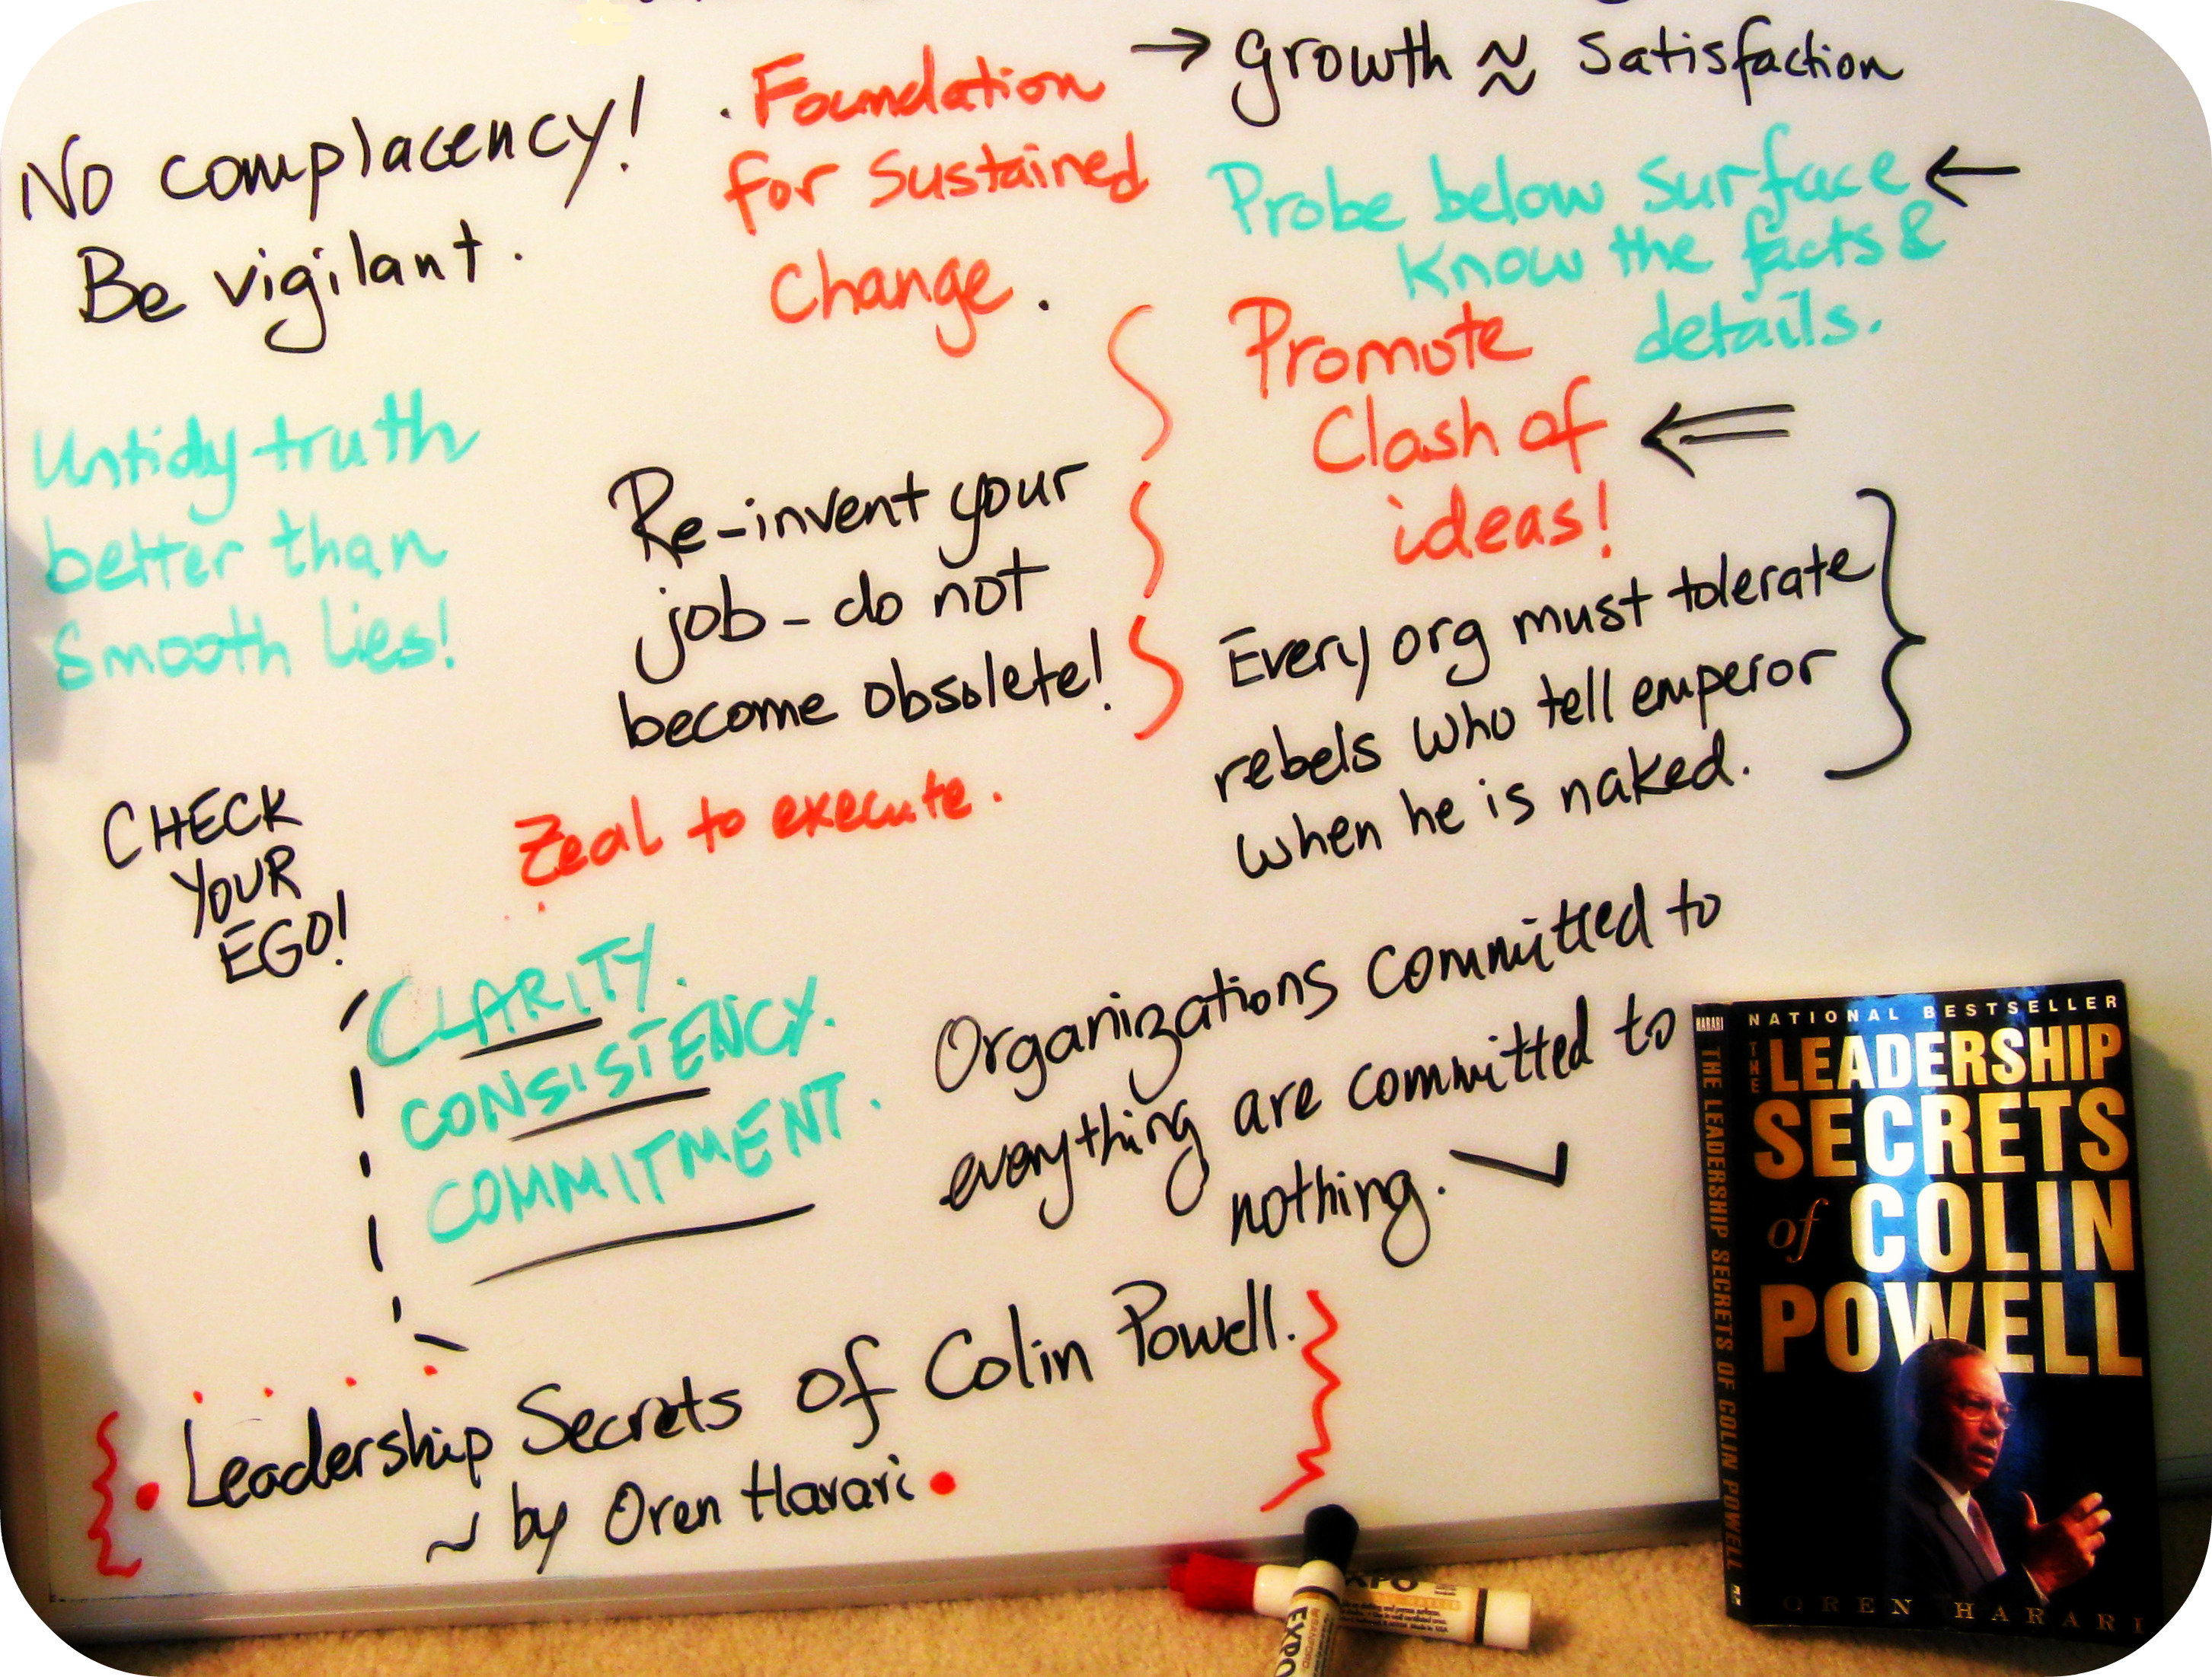 No complacency!
Be vigilant.
. Foundation
for Sustained
Change.
→ growth ≈ satisfaction
Probe below surface ←
know the facts &
details.
Untidy truth
better than
Smooth lies!
Re-invent your
job - do not
become obsolete!
Promote
Clash of
ideas!
Every org must tolerate
rebels who tell emperor
when he is naked.
CHECK
YOUR
EGO!
Zeal to execute.
CLARITY.
CONSISTENCY.
COMMITMENT.
Organizations committed to
everything are committed to
nothing.
Leadership Secrets of Colin Powell.
~ by Oren Harari
NATIONAL BESTSELLER
THE LEADERSHIP
SECRETS
of COLIN
POWELL
OREN HARARI
HARARI THE LEADERSHIP SECRETS OF COLIN POWELL
EXPO
EXPO